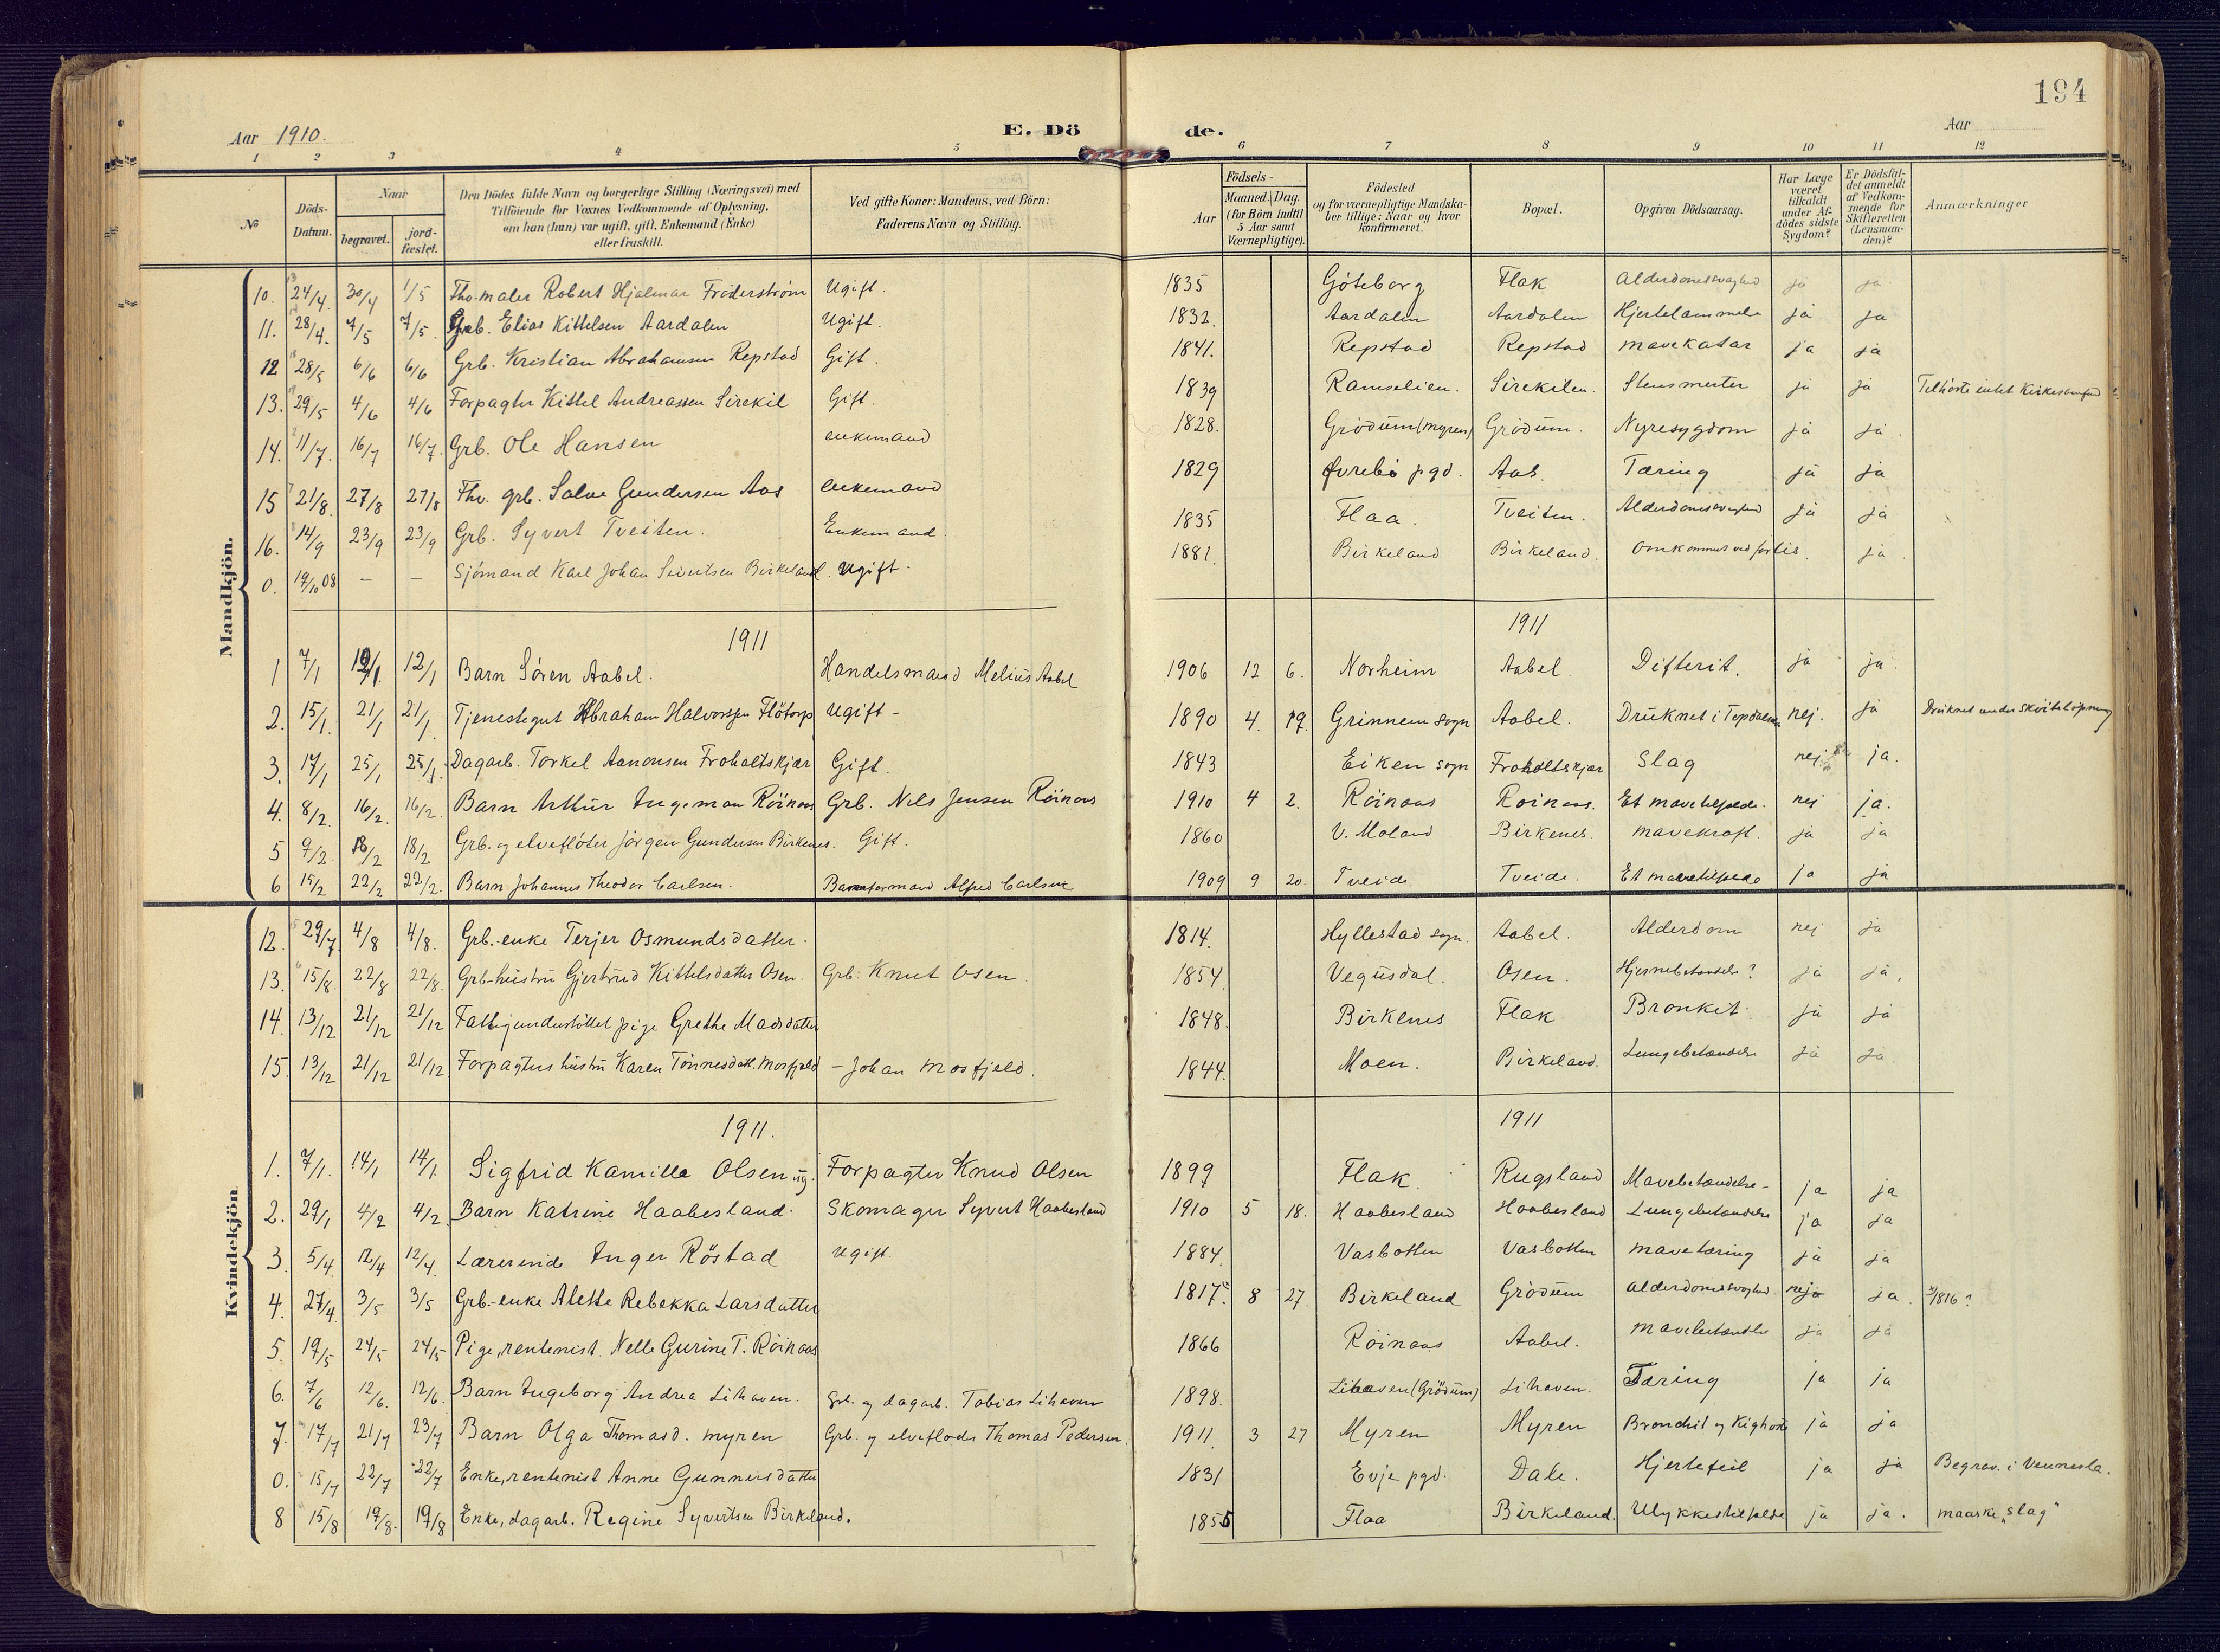 194
Aar 1910. E. Dö de. Aar
1 2 3 4 5 6 7 8 9 10 11 12
№ Döds-Datum. Naar begravet. jord-fæstet. Den Dödes fulde Navn og borgerlige Stilling (Næringsvei) med Tilföiende for Voxnes Vedkommende af Oplysning, om han (hun) var ugift, gift, Enkemand (Enke) eller fraskilt. Ved gifte Koner: Mandens, ved Börn: Faderens Navn og Stilling. Födsels- Aar Maaned. Dag. (for Börn indtil 5 Aar samt Værnepligtige). Födested og for værnepligtige Mandskaber tillige: Naar og hvor konfirmeret. Bopæl. Opgiven Dödsaarsag. Har Læge været tilkaldt under Afdödes sidste Sygdom? Er Dödsfaldet anmeldt af Vedkommende for Skifteretten (Lensmanden)? Anmærkninger
Mandkjön.
10. 24/4. 30/4 1/5 Robert Hjalmar Friderström Ugift. 1835 Göteborg Flak Alderdomssvaghed ja ja
11. 28/4. 7/5 7/5. Grb. Elias Kittelsen Aardalen Ugift. 1832. Aardalen Aardalen Hjertelammelse ja ja
12 28/5 6/6 6/6 Grb. Kristian Abrahamsen Repstad Gift. 1841. Repstad Repstad mavekatar ja ja
13. 29/5 4/6 4/6 Forpagter Kittel Andreassen Sirekil Gift. 1839 Ramselien. Sirekilen. Stensmerter ja ja Tilhörte intet Kirkesamfund
14. 11/7. 16/7 16/7. Grb. Ole Hansen enkemand 1828. Grödum (myren) Grödum. Nyresygdom ja ja
15 21/8. 27/8 27/8 Fhv. grb. Salve Gundersen Aas enkemand 1829 Øvrebö pgd. Aas. Tæring ja ja
16. 14/9 23/9 23/9 Grb. Syvert Tveiten. Enkemand. 1835 Flaa. Tveiten. Alderdomssvaghed ja ja
0. 19/10 08 — — Sjömand Karl Johan Sivertsen Birkeland. Ugift. 1881. Birkeland Birkeland. Omkommet ved forlis. ja
1911 1911
1 7/1 12/1. 12/1 Barn Sören Aabel. Handelsmand Melius Aabel 1906 12 6. Norheim Aabel. Difterit. ja ja
2. 15/1. 21/1 21/1. Tjenestegut Abraham Halvorssen Flötorp Ugift - 1890 4. 19. Grinnem sogn Aabel. Druknet i Topdalselven nej. ja Druknet under sköitelöpning
3. 17/1 25/1 25/1. Dagarb. Torkel Aanonsen Froholtskjær Gift. 1843 Eiken sogn Froholtskjær Slag nej ja.
4. 8/2. 16/2. 16/2. Barn Arthur Ingeman Röinaas Grb. Nils Jensen Röinaas 1910 4 2. Röinaas Roinaas. Et mavetilfælde. nej ja.
5 9/2. 18/2 18/2 Grb. og elveflöter Jörgen Gundersen Birkenes. Gift. 1860 V. Moland Birkenes. mavekræft. ja ja
6 15/2 22/2 22/2. Barn Johannes Theodor Carlsen. Baneformand Alfred Carlsen 1909 9 20. Tveide Tveide. Et mavetilfælde ja ja
Kvindekjön
12. 29/7. 4/8 4/8. Grb.-enke Terjer Osmundsdatter. 1814. Hyllestad sogn. Aabel. Alderdom nej ja
13. 15/8. 22/8 22/8. Grb-hustru Gjertrud Kittelsdatter Osen. Grb. Knut Osen. 1854. Vegusdal. Osen. Hjernebetændelse? ja ja.
14. 13/12 21/12 21/12 Fattigunderstöttet pige Grethe Madsdatter 1848. Birkenes Flak Bronkit. ja ja
15. 13/12 21/12 21/12 Forpagters hustru Karen Tönnesdatt. Mosfjeld - Johan Mosfjeld. 1844. Moen. Birkeland. Lungebetændelse ja ja
1911. 1911
1. 7/1. 14/1 14/1. Sigfrid Kamilla Olsen ug. Forpagter Knud Olsen 1899 Flak. Rugsland Mavebetændelse- ja ja
2. 29/1 4/2 4/2. Barn Katrine Haabesland. Skomager Syvert Haabesland 1910 5 18. Haabesland Haabesland Lungebetændelse ja ja
3. 5/4. 12/4 12/4. Lærerinde Inger Röstad ugift. 1884. Vasbotten Vasbotten mavetæring ja ja
4. 27/4. 3/5 3/5 Grb.-enke Alette Rebekka Larsdatter 1817. 8 27. Birkeland Grödum alderdomssvaghed nej ja. 1816?
5. 19/5 24/5 24/5 Pige, rentenist. Nelle Gurine T. Röinaas 1866 Röinaas Aabel. mavebetændelse ja ja
6. 7/6 12/6. 12/6. Barn Ingeborg Andrea Lihaven. Grb. og dagarb. Tobias Lihaven 1898. Lihaven (Grödum) Lihaven. Tæring ja ja
7. 17/7 21/7 23/7 Barn Olga Thomasd. myren Grb. og elveflöder Thomas Pedersen. 1911. 3 27 Myren Myren Bronchit og Kighoste ja ja
0. 15/7 22/7 22/7 Enke, rentenist Anne Gunnersdatter 1831 Evje pgd. Dale. Hjertefeil ja ja Begrav. i Vennesla.
8 15/8 19/8. 19/8 Enke, dagarb. Regine Syvertsen Birkeland. 1855 Flaa Birkeland. Ulykkestilfælde ja ja. maaske "slag"